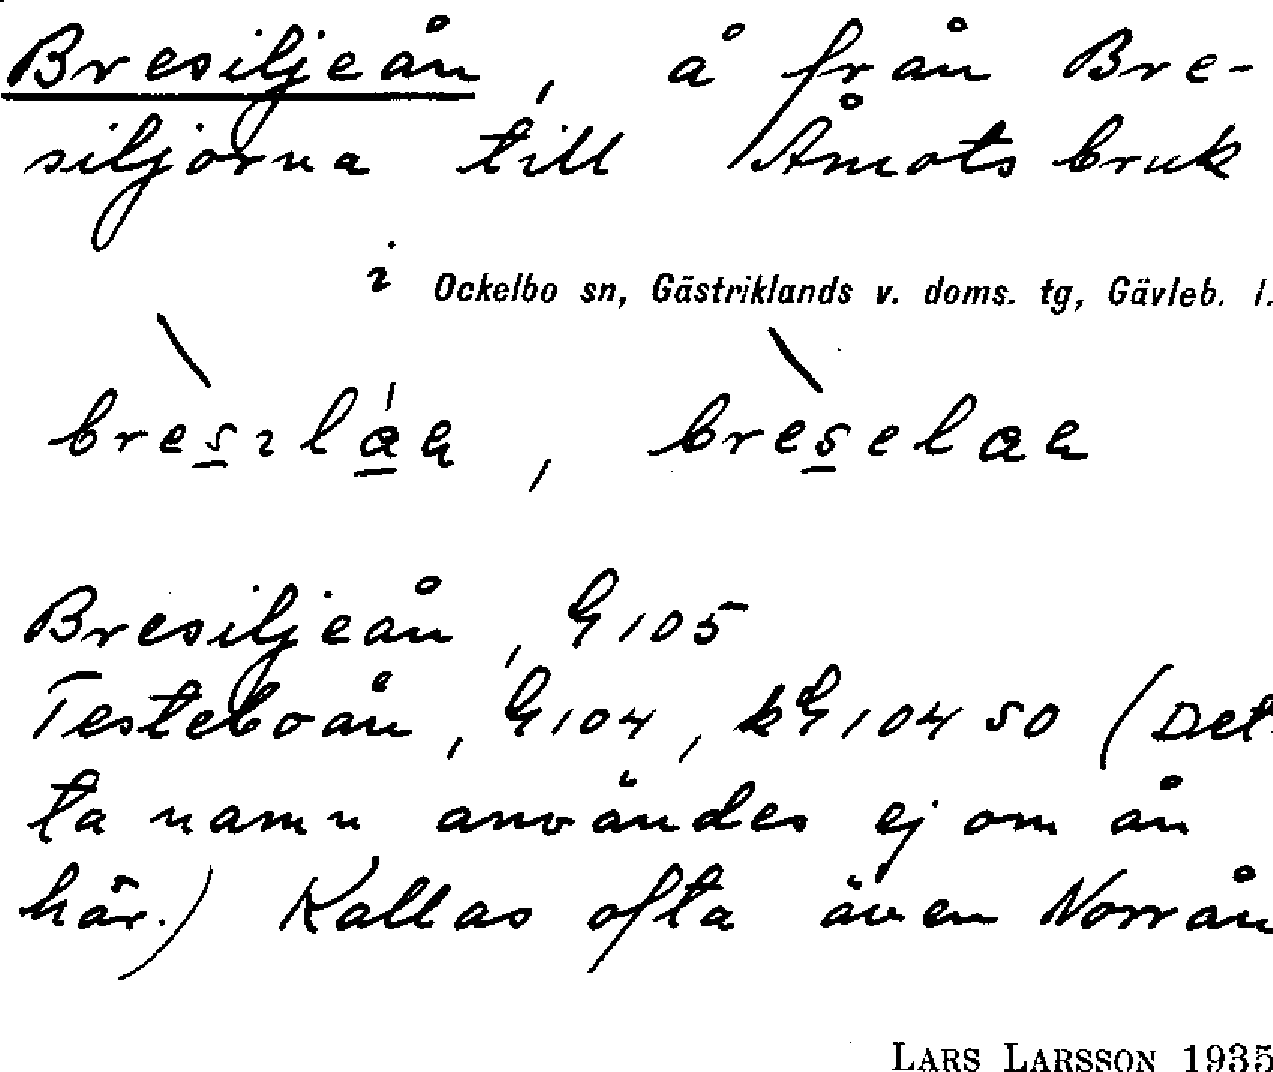 Bresiljeån, å från Bre-
siljorna till Åmots bruk
i Ockelbo sn, Gästriklands v. doms. tg, Gävleb. l.
Bresiljeån, G 105
Testeboån, G 104, kG 104 50 (Det-
ta namn användes ej om ån
här.) Kallas ofta även Norrån
LARS LARSSON 1935